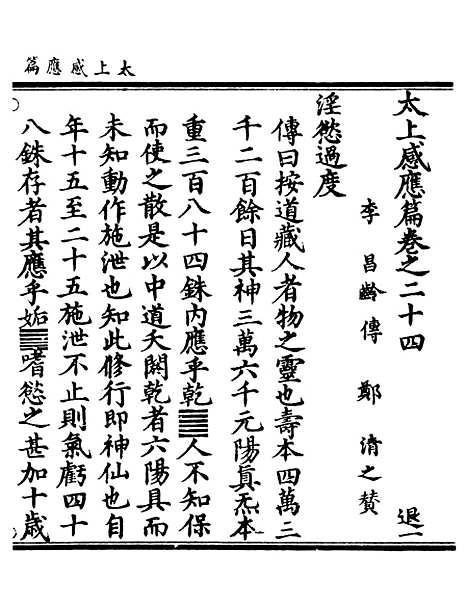 太上感應篇
太上感應篇卷之二十四
退一
李昌齡傳 鄭清之贊
淫慾過度
傳曰按道藏人者物之靈也壽本四萬三
千二百餘日其神三萬六千元陽真炁本
重三百八十四銖內應乎乾䷀人不知保
而使之散是以中道夭閼乾者六陽具而
未知動作施泄也知此修行即神仙也自
年十五至二十五施泄不止則氣虧四十
八銖存者其應乎姤䷫嗜慾之甚加十歲